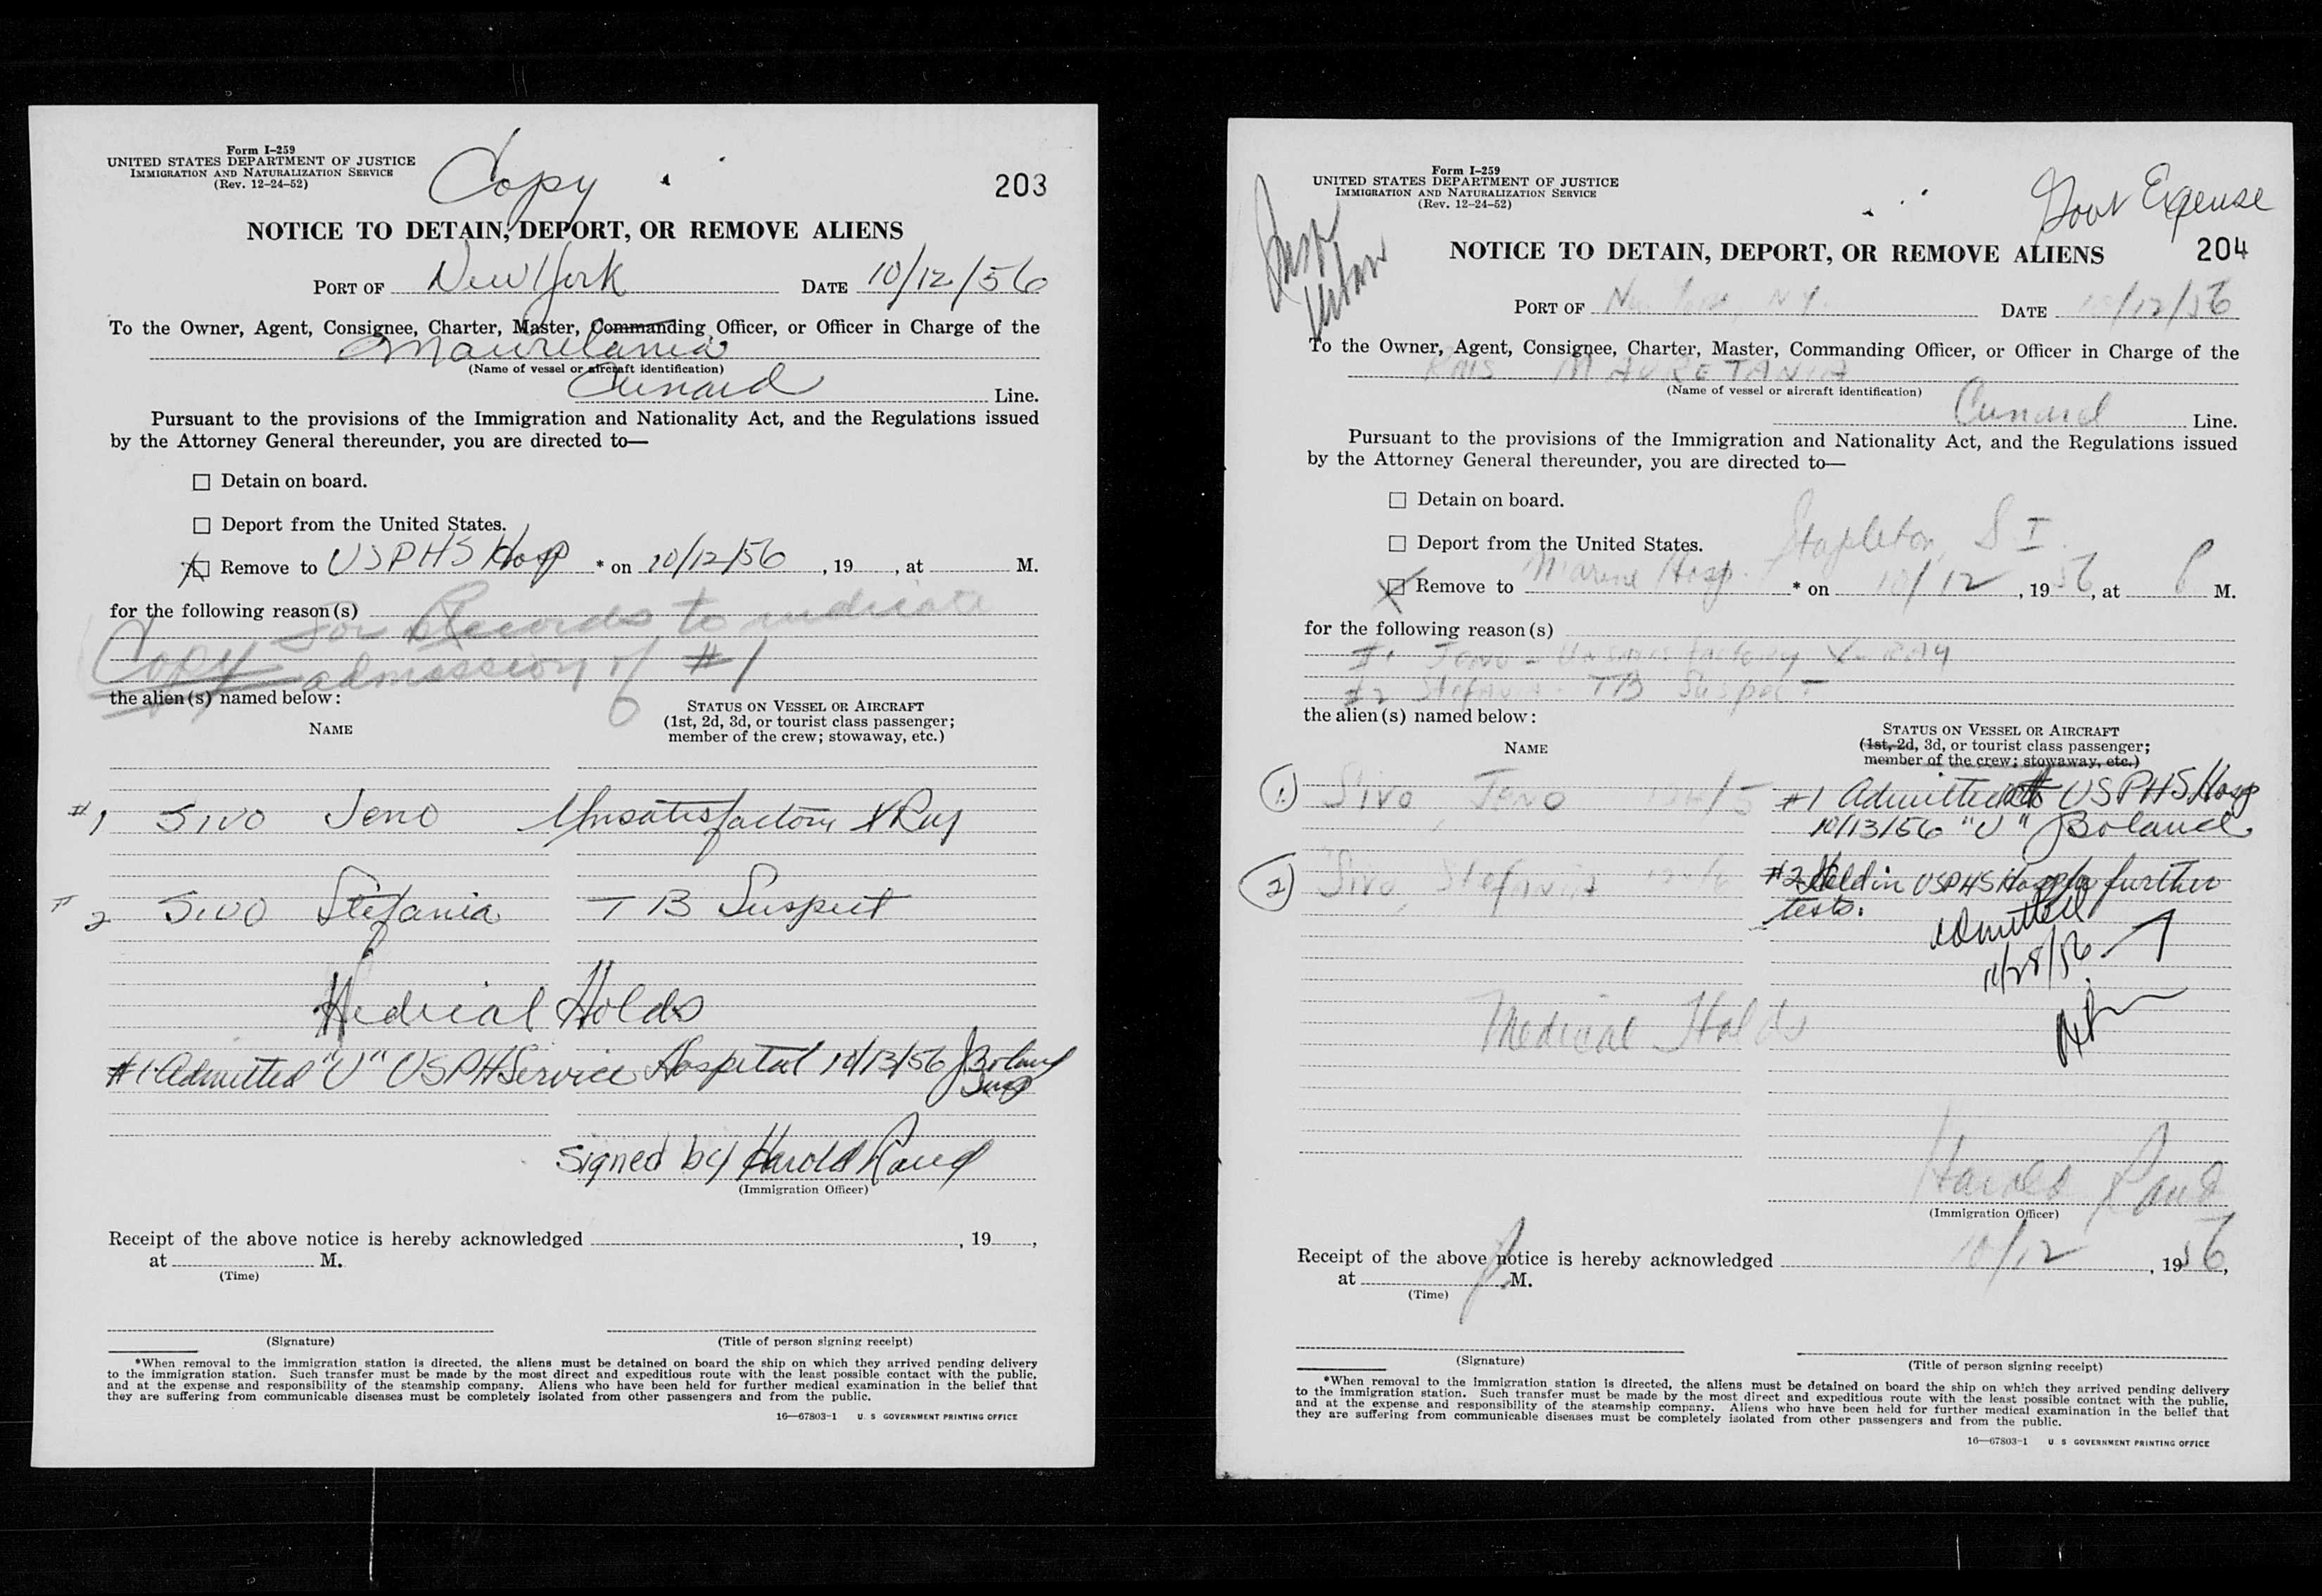 Form I-259
UNITED STATES DEPARTMENT OF JUSTICE
IMMIGRATION AND NATURALIZATION SERVICE
(Rev. 12-24-52)
Copy
203
NOTICE TO DETAIN, DEPORT, OR REMOVE ALIENS
PORT OF New York DATE 10/12/56
To the Owner, Agent, Consignee, Charter, Master, Commanding Officer, or Officer in Charge of the
Mauretania
(Name of vessel or aircraft identification)
Cunard Line.
Pursuant to the provisions of the Immigration and Nationality Act, and the Regulations issued
by the Attorney General thereunder, you are directed to—
☐ Detain on board.
☐ Deport from the United States.
☒ Remove to USPHS Hosp * on 10/12/56, 19, at M.
for the following reason(s)
For Records to indicate
Copy admission of #1
the alien(s) named below:
NAME
STATUS ON VESSEL OR AIRCRAFT
(1st, 2d, 3d, or tourist class passenger;
member of the crew; stowaway, etc.)
#1 Sivo Jeno Unsatisfactory XRay
#2 Sivo Stefania TB Suspect
Medical Holds
#1 Admitted "U" USPHService Hospital 10/13/56 J Boland
Insp
Signed by Harold Rand
(Immigration Officer)
Receipt of the above notice is hereby acknowledged , 19 ,
at M.
(Time)
(Signature)
(Title of person signing receipt)
*When removal to the immigration station is directed, the aliens must be detained on board the ship on which they arrived pending delivery
to the immigration station. Such transfer must be made by the most direct and expeditious route with the least possible contact with the public,
and at the expense and responsibility of the steamship company. Aliens who have been held for further medical examination in the belief that
they are suffering from communicable diseases must be completely isolated from other passengers and from the public.
16—67803-1 U. S GOVERNMENT PRINTING OFFICE
Form I-259
UNITED STATES DEPARTMENT OF JUSTICE
IMMIGRATION AND NATURALIZATION SERVICE
(Rev. 12-24-52)
Govt Expense
204
NOTICE TO DETAIN, DEPORT, OR REMOVE ALIENS
PORT OF New York, N.Y. DATE 10/12/56
To the Owner, Agent, Consignee, Charter, Master, Commanding Officer, or Officer in Charge of the
RMS MAURETANIA
(Name of vessel or aircraft identification)
Cunard Line.
Pursuant to the provisions of the Immigration and Nationality Act, and the Regulations issued
by the Attorney General thereunder, you are directed to—
☐ Detain on board.
☐ Deport from the United States.
Stapleton, S I.
☒ Remove to Marine Hosp. * on 10/12, 1956, at P M.
for the following reason(s)
#1 Jeno - Unsatisfactory X-RAY
#2 Stefania - TB Suspect
the alien(s) named below:
NAME
STATUS ON VESSEL OR AIRCRAFT
(1st, 2d, 3d, or tourist class passenger;
member of the crew; stowaway, etc.)
1. Sivo, Jeno
#1 Admitted USPHS Hosp
10/13/56 "U" J Boland
2) Sivo, Stefania
#2 Held in USPHS Hosp for further
tests.
Admitted
Medical Holds
Harold Rand
(Immigration Officer)
Receipt of the above notice is hereby acknowledged 10/12, 1956,
at M.
(Time)
(Signature)
(Title of person signing receipt)
*When removal to the immigration station is directed, the aliens must be detained on board the ship on which they arrived pending delivery
to the immigration station. Such transfer must be made by the most direct and expeditious route with the least possible contact with the public,
and at the expense and responsibility of the steamship company. Aliens who have been held for further medical examination in the belief that
they are suffering from communicable diseases must be completely isolated from other passengers and from the public.
16—67803-1 U S GOVERNMENT PRINTING OFFICE